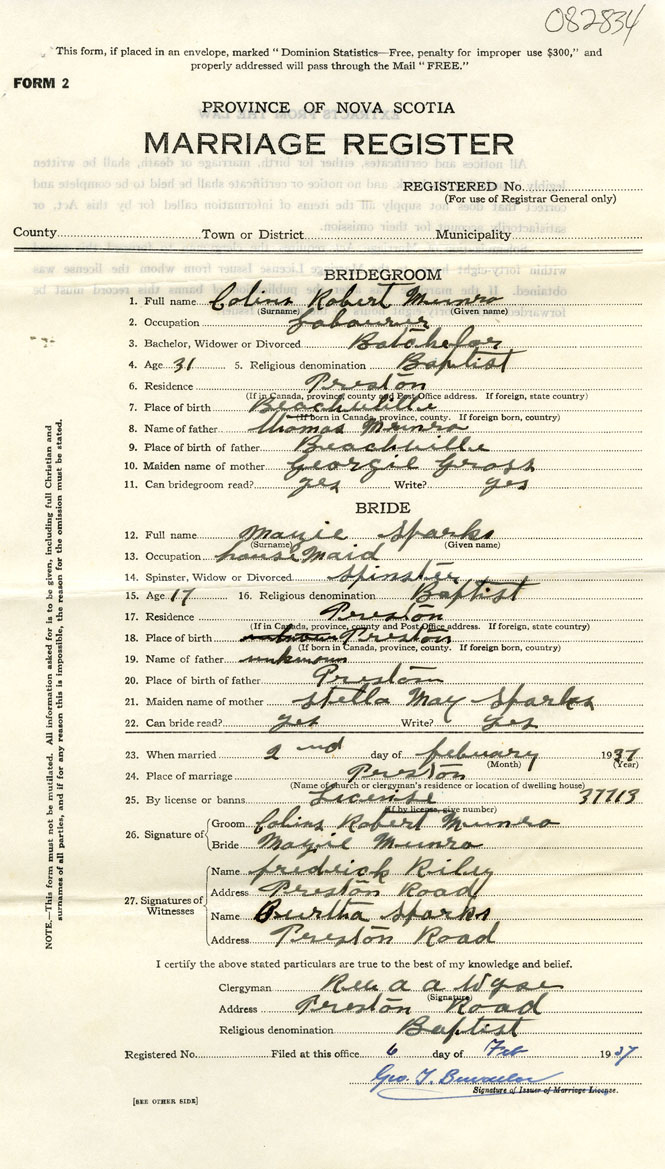 082834
This form, if placed in an envelope, marked "Dominion Statistics—Free, penalty for improper use $300," and
properly addressed will pass through the Mail "FREE."
FORM 2
PROVINCE OF NOVA SCOTIA
MARRIAGE REGISTER
REGISTERED No.
(For use of Registrar General only)
County Town or District Municipality
BRIDEGROOM
1. Full name Colins Robert Munro
(Surname) (Given name)
2. Occupation Labourer
3. Bachelor, Widower or Divorced Batchelor
4. Age 31 5. Religious denomination Baptist
6. Residence Preston
(If in Canada, province, county and Post Office address. If foreign, state country)
7. Place of birth Beachville
(If born in Canada, province, county. If foreign born, country)
8. Name of father thomas Munro
9. Place of birth of father Beachville
10. Maiden name of mother Georgie Gross
11. Can bridegroom read? yes Write? yes
BRIDE
12. Full name Mayie Sparks
(Surname) (Given name)
13. Occupation house Maid
14. Spinster, Widow or Divorced Spinster
15. Age 17 16. Religious denomination Baptist
17. Residence Preston
(If in Canada, province, county and Post Office address. If foreign, state country)
18. Place of birth Preston
(If born in Canada, province, county. If foreign born, country)
19. Name of father unknown
20. Place of birth of father Preston
21. Maiden name of mother Stella May Sparks
22. Can bride read? yes Write? yes
23. When married 2nd day of febuary 1937
(Month) (Year)
24. Place of marriage Preston
(Name of church or clergyman's residence or location of dwelling house)
25. By license or banns License 37713
(If by license, give number)
26. Signature of
Groom Colins Robert Munro
Bride Mayie Munro
27. Signatures of Witnesses
Name fredrick Riley
Address Preston Road
Name Burtha Sparks
Address Preston Road
I certify the above stated particulars are true to the best of my knowledge and belief.
Clergyman Rev a a Wyse
(Signature)
Address Preston Road
Religious denomination Baptist
Registered No. Filed at this office 6 day of Feb 1937
Geo. T.
Signature of Issuer of Marriage License.
[SEE OTHER SIDE]
NOTE.—This form must not be mutilated. All information asked for is to be given, including full Christian and
surnames of all parties, and if for any reason this is impossible, the reason for the omission must be stated.